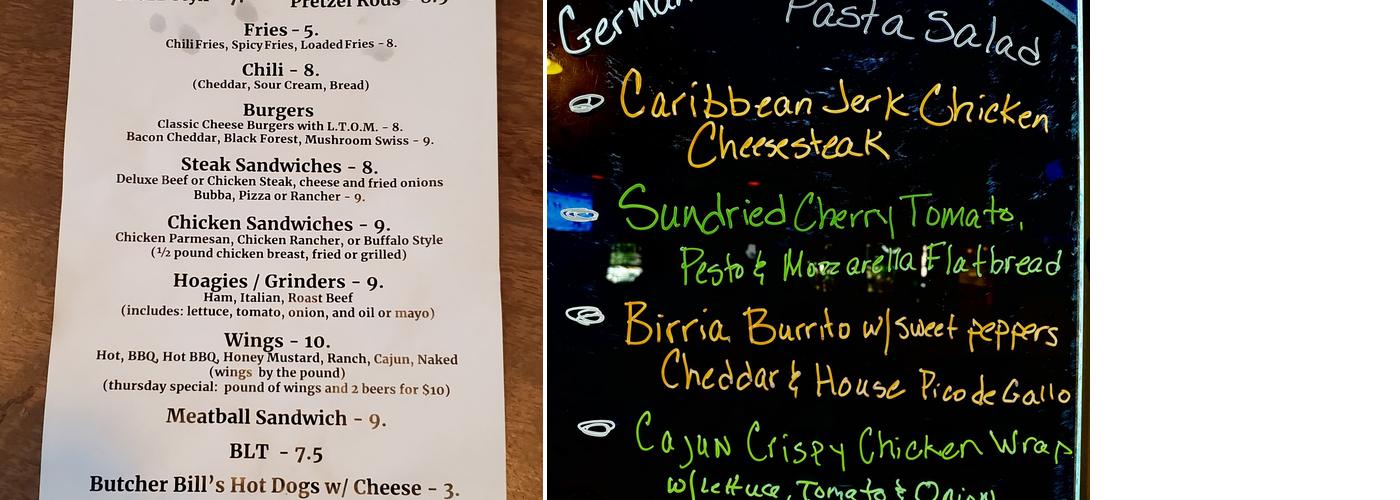 Pretzel Rods
Fries - 5.
Chili Fries, Spicy Fries, Loaded Fries - 8.
Chili - 8.
(Cheddar, Sour Cream, Bread)
Burgers
Classic Cheese Burgers with L.T.O.M. - 8.
Bacon Cheddar, Black Forest, Mushroom Swiss - 9.
Steak Sandwiches - 8.
Deluxe Beef or Chicken Steak, cheese and fried onions
Bubba, Pizza or Rancher - 9.
Chicken Sandwiches - 9.
Chicken Parmesan, Chicken Rancher, or Buffalo Style
(½ pound chicken breast, fried or grilled)
Hoagies / Grinders - 9.
Ham, Italian, Roast Beef
(includes: lettuce, tomato, onion, and oil or mayo)
Wings - 10.
Hot, BBQ, Hot BBQ, Honey Mustard, Ranch, Cajun, Naked
(wings by the pound)
(thursday special: pound of wings and 2 beers for $10)
Meatball Sandwich - 9.
BLT - 7.5
Butcher Bill's Hot Dogs w/ Cheese - 3.
German Pasta Salad
Caribbean Jerk Chicken
Cheesesteak
Sundried Cherry Tomato,
Pesto & Mozzarella Flatbread
Birria Burrito w/ sweet peppers
Cheddar & House Pico de Gallo
Cajun Crispy Chicken Wrap
w/ Lettuce, Tomato & Onion